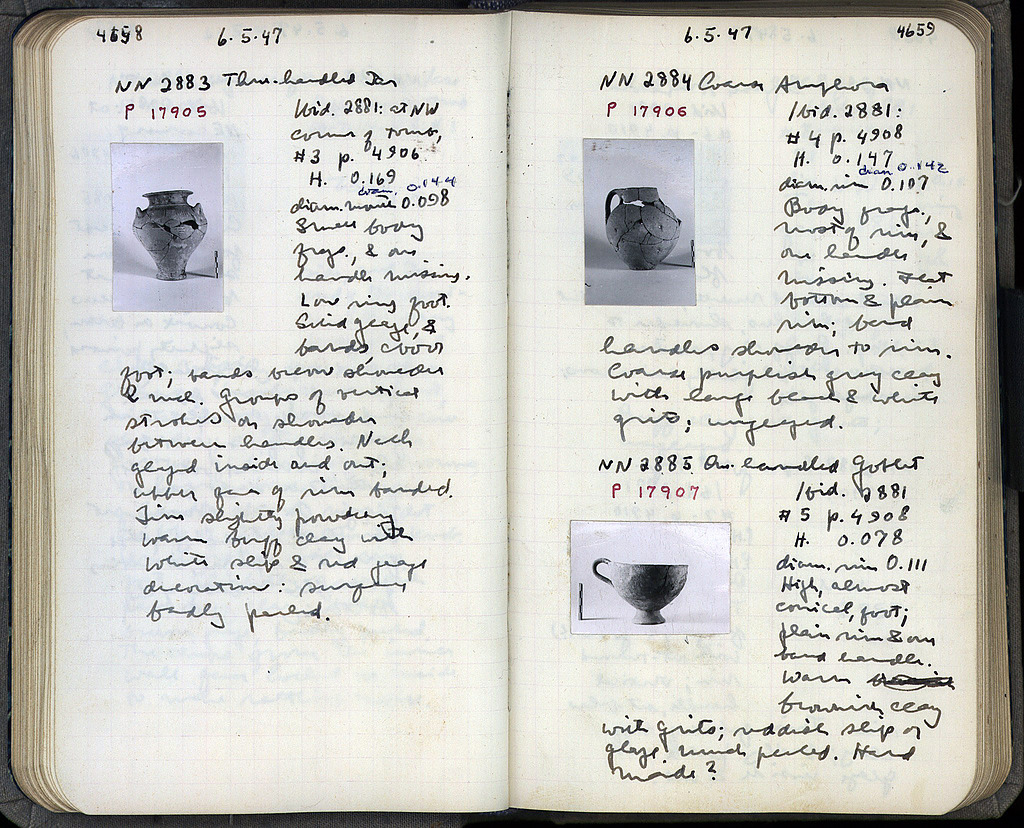 4658
6·5·47
NN 2883 Three-handled Jar
P 17905
Ibid. 2881: at NW
corner of tomb,
#3 p. 4906
H. 0.169
diam. 0.144
diam. mouth 0.098
Small body
frags., & one
handle missing.
Low ring foot.
Solid glaze, &
bands, above
foot; bands below shoulder
& neck. Groups of vertical
strokes on shoulder
between handles. Neck
glazed inside and out;
upper face of rim banded.
Fine slightly powdery
warm buff clay with
white slip & red glaze
decoration: surface
badly peeled.
6·5·47
4659
NN 2884 Coarse Amphora
P 17906
Ibid. 2881:
#4 p. 4908
H. 0.147
diam 0.142
diam. rim 0.107
Body frags.,
most of rim, &
one handle
missing. Flat
bottom & plain
rim; band
handles shoulder to rim.
Coarse purplish grey clay
with large black & white
grits; unglazed.
NN 2885 One-handled Goblet
P 17907
Ibid. 2881
#5 p. 4908
H. 0.078
diam. rim 0.111
High, almost
conical, foot;
plain rim & one
band handle.
Warm
brownish clay
with grits; reddish slip or
glaze much peeled. Hand
made?